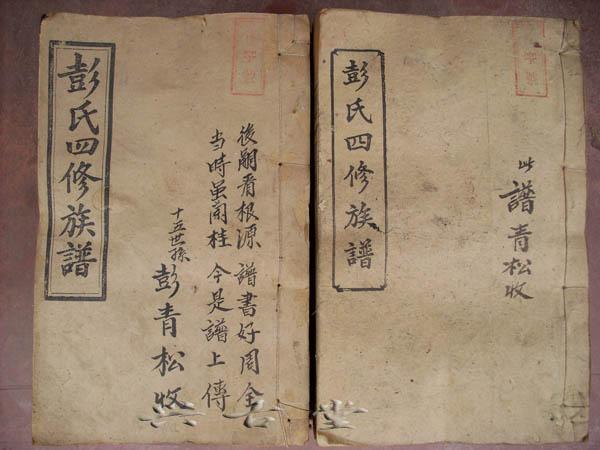 彭氏四修族譜
後嗣看根源 譜書好周全
当時虽桂 今是譜上傳
十五世孫 彭青松收
彭氏四修族譜
此譜青松收